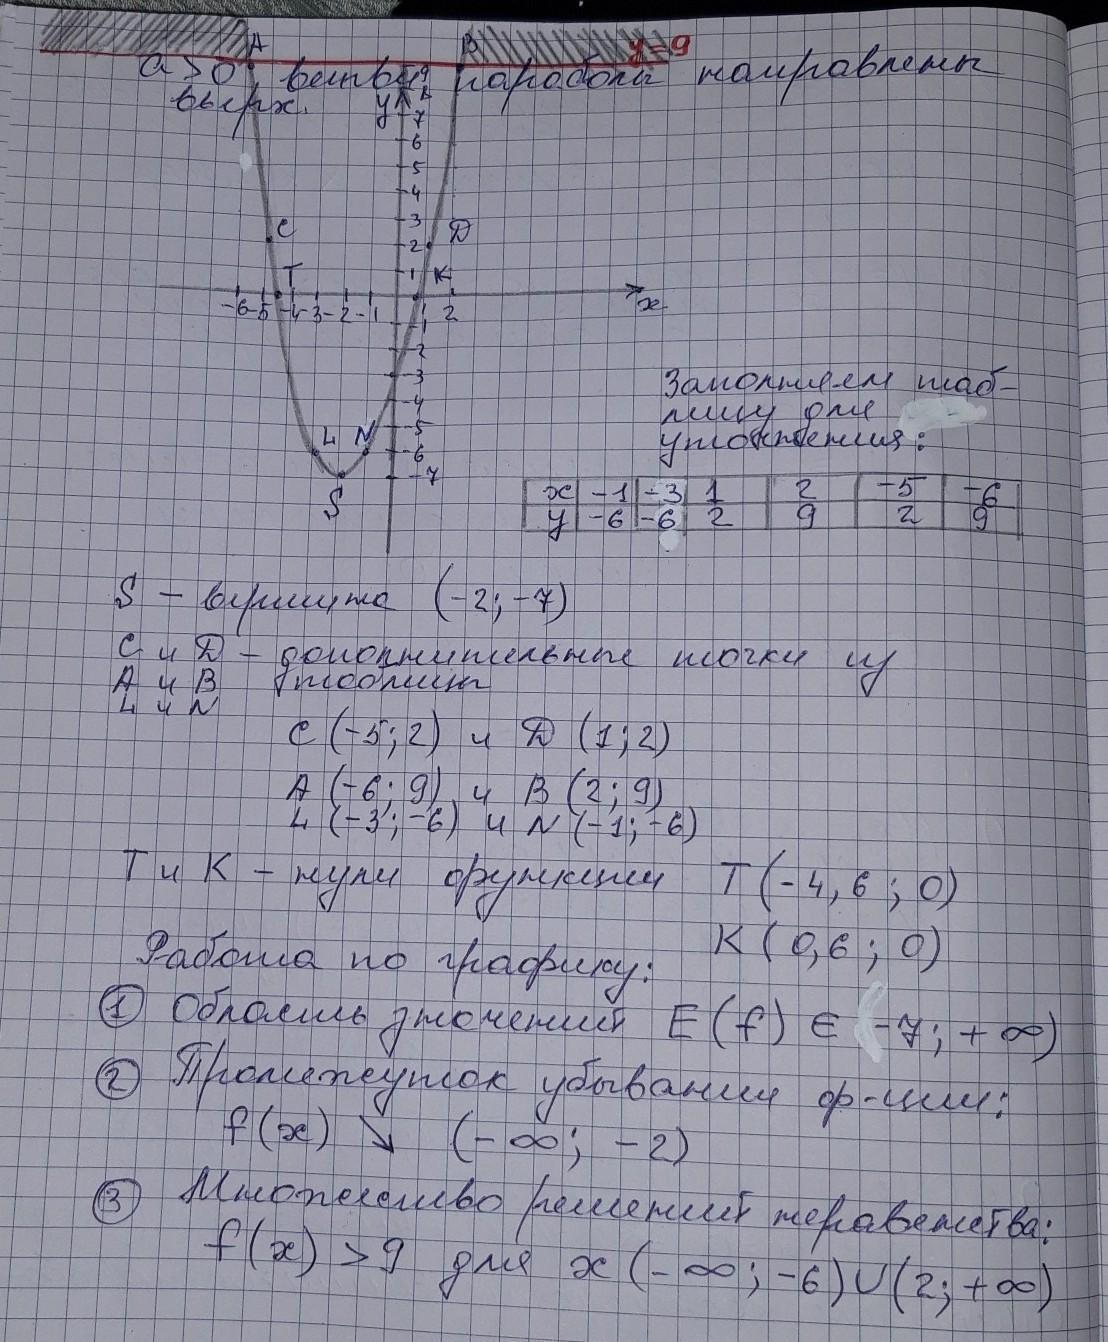 A B y=9
a > 0 ветви параболы направлены
вверх.
y 9 8 7
6
5
4
C 3 D
2
T 1 K
-6 -5 -4 -3 -2 -1 1 2 x
-1
-2
-3
-4
L N -5
-6
S -7
Заполняем таб-
лицу для
уточнения:
x -1 -3 1 2 -5 -6
y -6 -6 2 9 2 9
S - вершина (-2; -7)
C и D - дополнительные точки из
A и B таблицы
L и N
C (-5; 2) и D (1; 2)
A (-6; 9) и B (2; 9)
L (-3; -6) и N (-1; -6)
T и K - нули функции T (-4,6 ; 0)
K (0,6 ; 0)
Работа по графику:
① Область значений E(f) ∈ (-7; +∞)
② Промежуток убывания ф-ции:
f(x) ↘ (-∞; -2)
③ Множество решений неравенства:
f(x) > 9 для x (-∞; -6) ∪ (2; +∞)